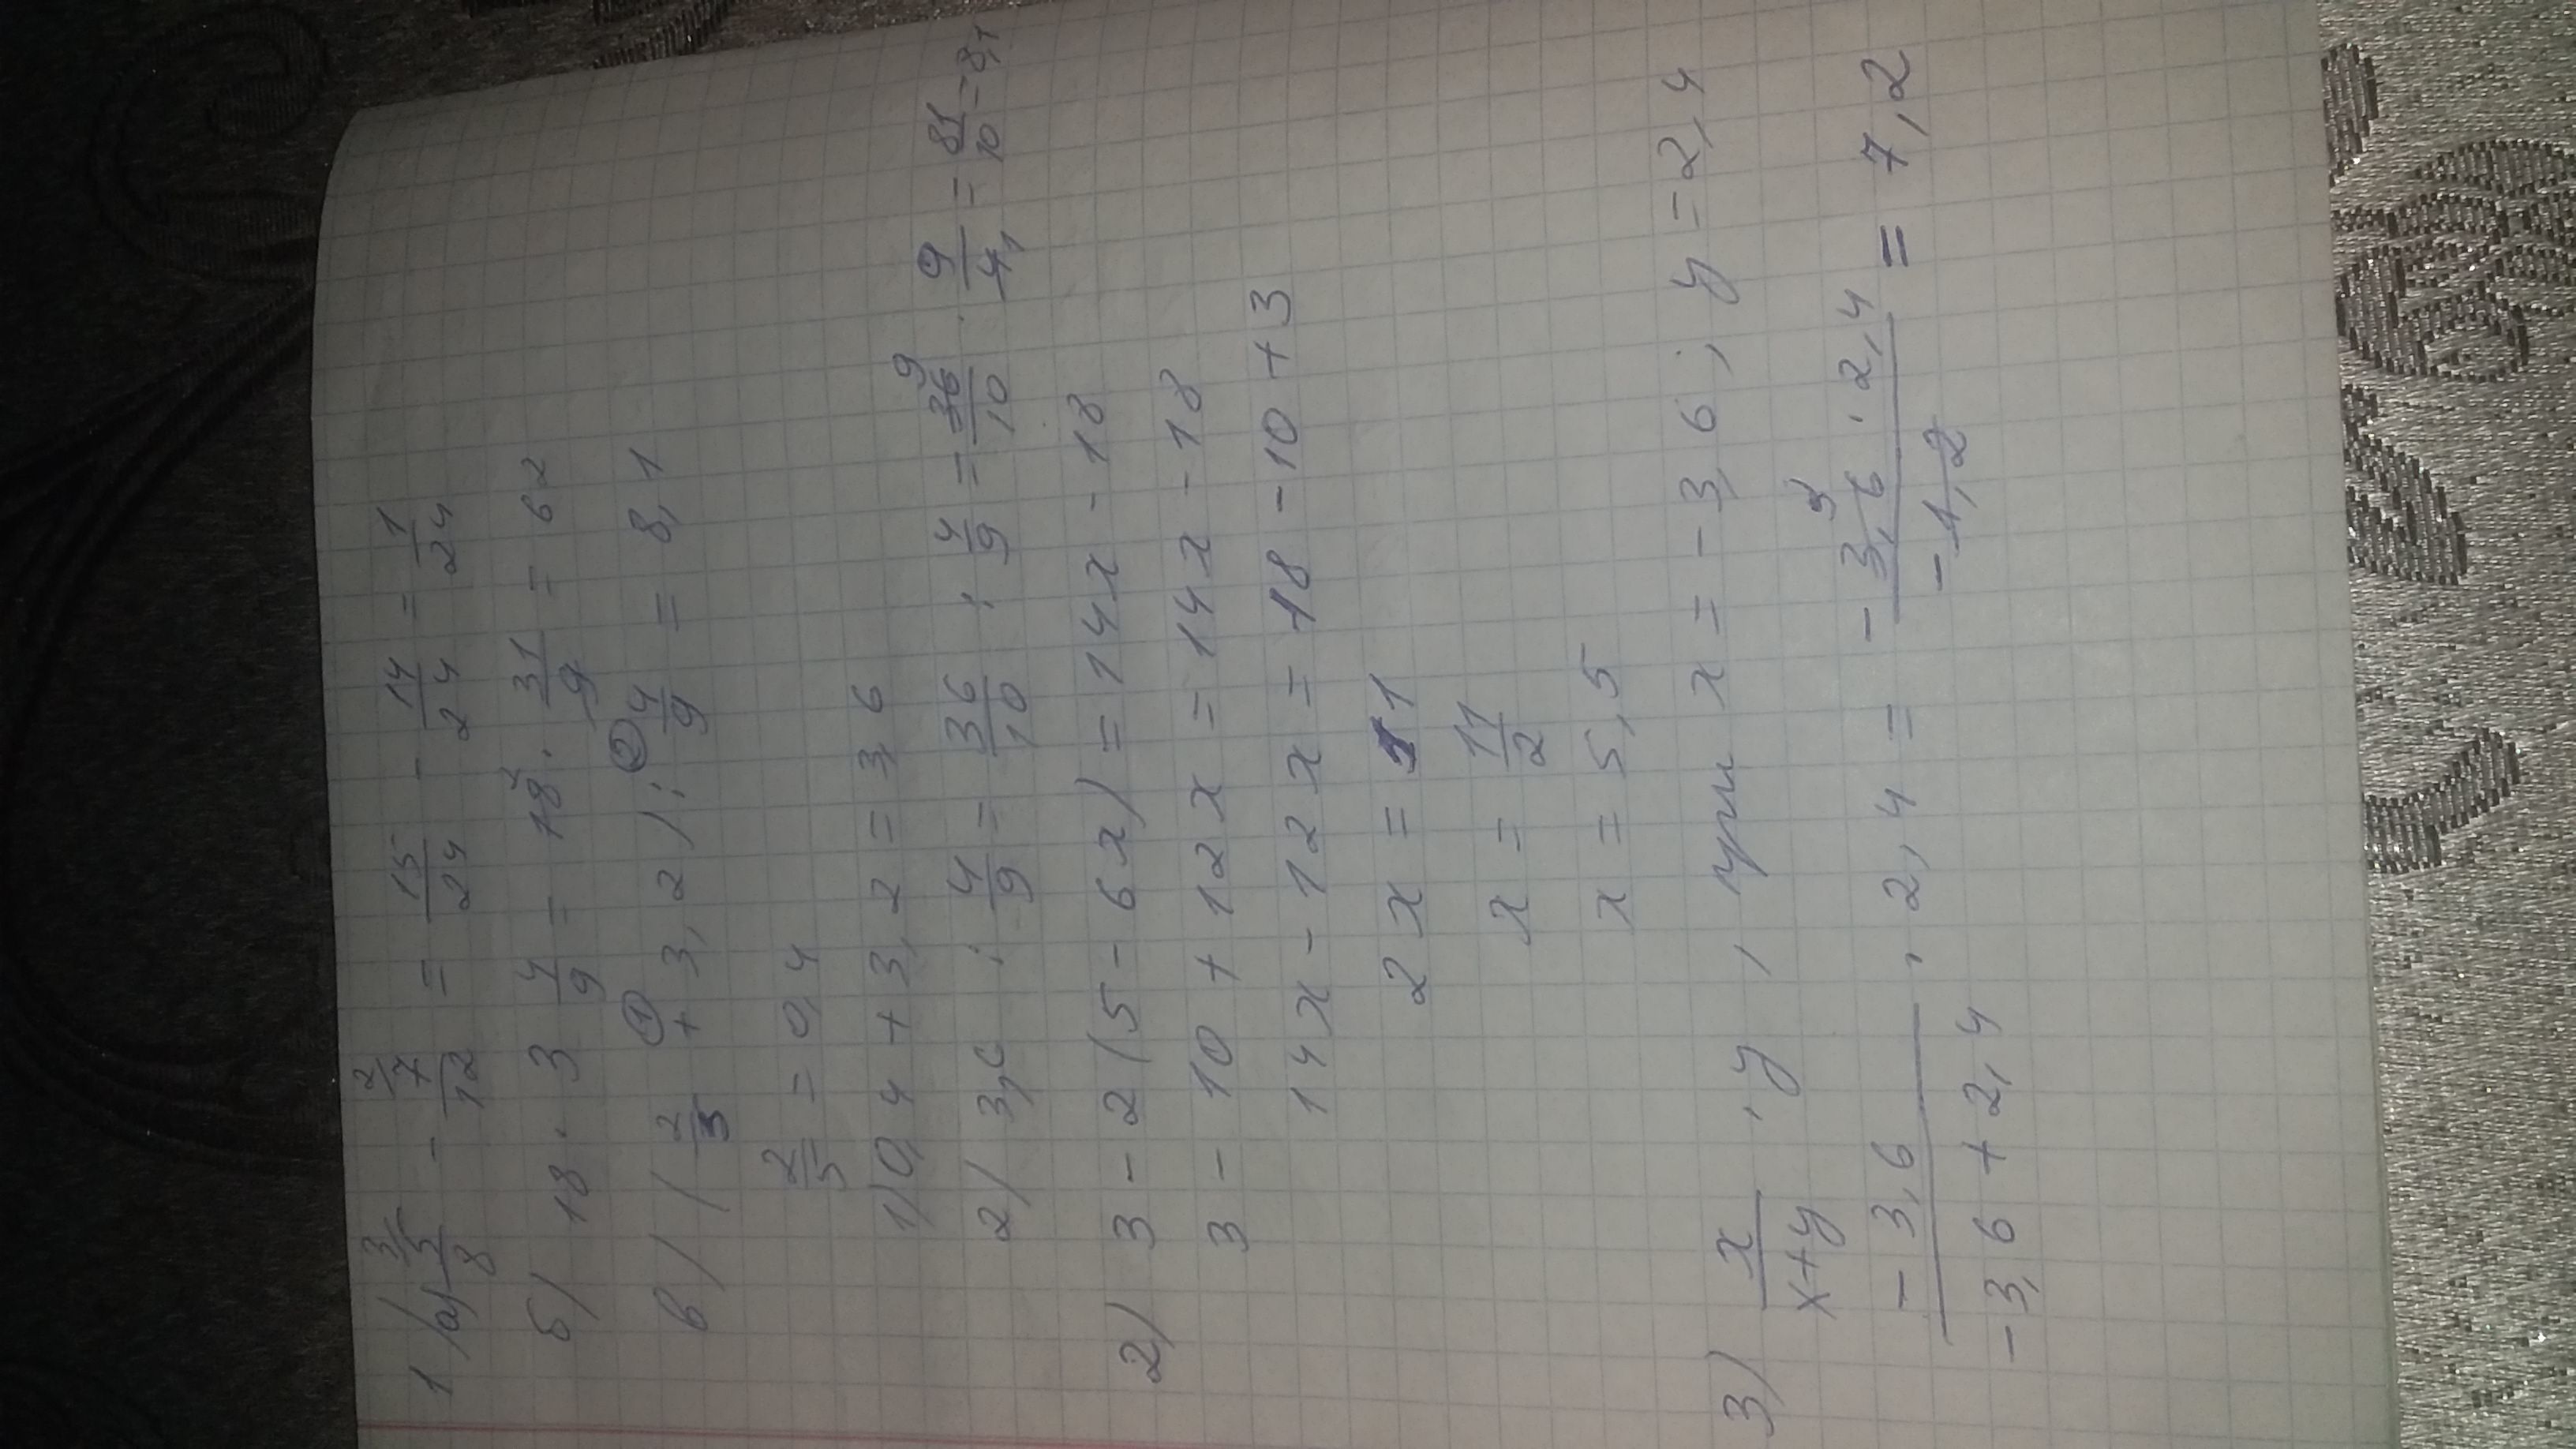 1) а) 3/ 5/8 - 2/ 7/12 = 15/24 - 14/24 = 1/24
б) 18 · 3 4/9 = 18 2 · 31/9 = 62
в) (2/5 ① + 3,2) : ② 4/9 = 8,1
2/5 = 0,4
1) 0,4 + 3,2 = 3,6
2) 3,6 : 4/9 = 36/10 : 4/9 = 36 9/10 · 9/4 1 = 81/10 = 8,1
2) 3 - 2(5 - 6x) = 14x - 18
3 - 10 + 12x = 14x - 18
14x - 12x = 18 - 10 + 3
2x = 11
x = 11/2
x = 5,5
3) x/x+y · y, при x = - 3,6; y = 2,4
-3,6/-3,6 + 2,4 · 2,4 = -3,6 3 · 2,4/-1,2 = 7,2